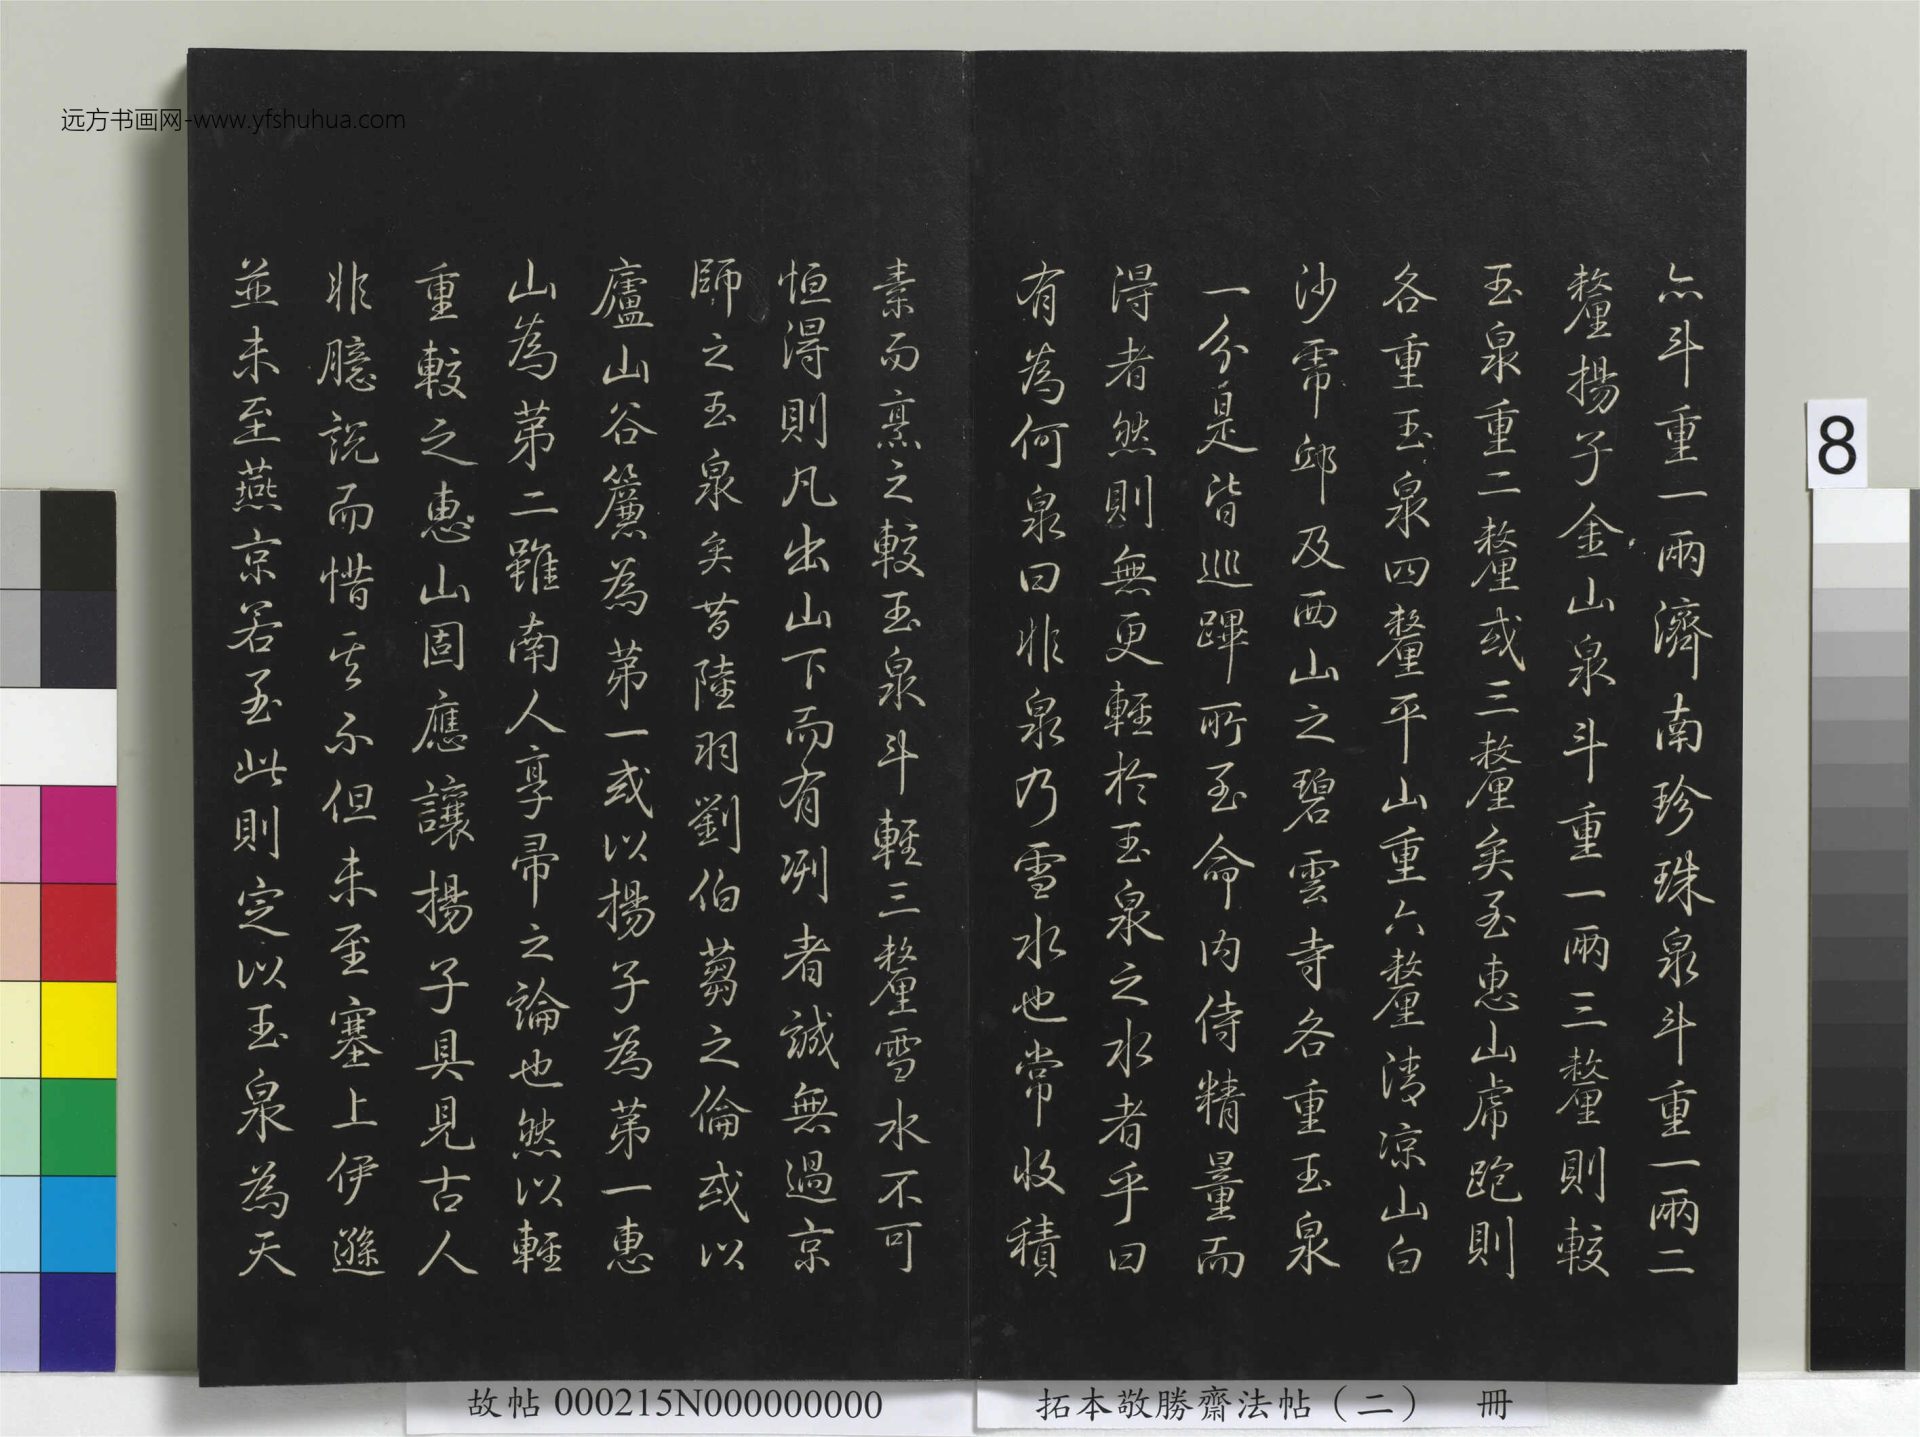 远方书画网-www.yfshuhua.com
亦斗重一兩濟南珍珠泉斗重一兩二
釐揚子金山泉斗重一兩三釐則較
玉泉重二釐或三釐矣至惠山虎跑則
各重玉泉四釐平山重六釐清凉山白
沙虎邱及西山之碧雲寺各重玉泉
一分是皆巡蹕所至命內侍精量而
得者然則無更輕於玉泉之水者乎曰
有為何泉曰非泉乃雪水也常收積
素而烹之較玉泉斗輕三釐雪水不可
恒得則凡出山下而有冽者誠無過京
師之玉泉矣昔陸羽劉伯芻之倫或以
廬山谷簾為第一或以揚子為第一惠
山為第二雖南人享帚之論也然以輕
重較之惠山固應讓揚子具見古人
非臆說而惜其不但未至塞上伊遜
並未至燕京若至此則定以玉泉為天
8
故帖 000215N000000000
拓本敬勝齋法帖（二） 冊